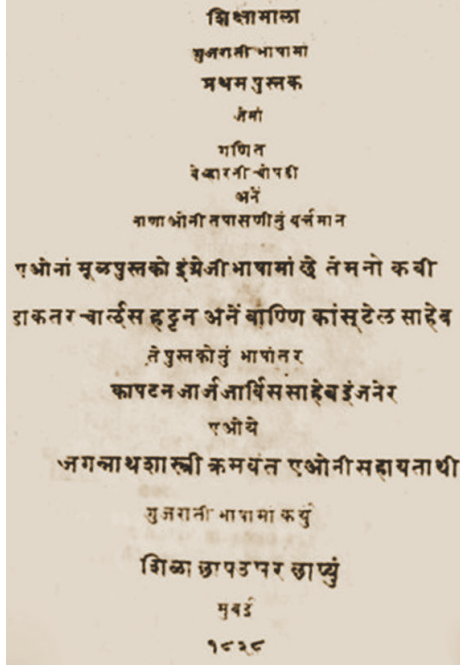 शिक्षामाला
गुजराती भाषामां
प्रथम पुस्तक
जेमां
गणित
वेव्हारनी चोपडी
अनें
नाणाओनी तपासणीनुं वर्त्तमान
एओनां मूळपुस्तको इंग्रेजीभाषामां छे तेमनो कवी
डाकतर चार्ल्स हट्टन अनें बाण्णि कांस्टेल साहेब
ते पुस्तकोनुं भाषांतर
कापटन जार्ज जार्विस साहेब इंजनेर
एओये
जगन्नाथशास्त्री क्रमवंत एओनी सहायताथी
गुजराती भाषामां कर्युं
शिळा छाप उपर छाप्युं
मुंबई
१८२८